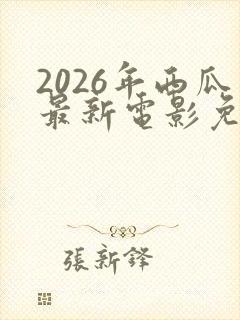 2026年西瓜
最新電影免
張新鋒